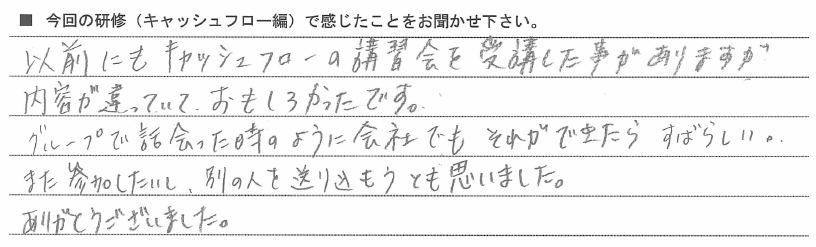 ■ 今回の研修（キャッシュフロー編）で感じたことをお聞かせ下さい。
以前にもキャッシュフローの講習会を受講した事がありますが
内容が違っていて、おもしろかったです。
グループで話会った時のように会社でもそれができたらすばらしい。
また参加したいし、別の人を送り込もうとも思いました。
ありがとうございました。